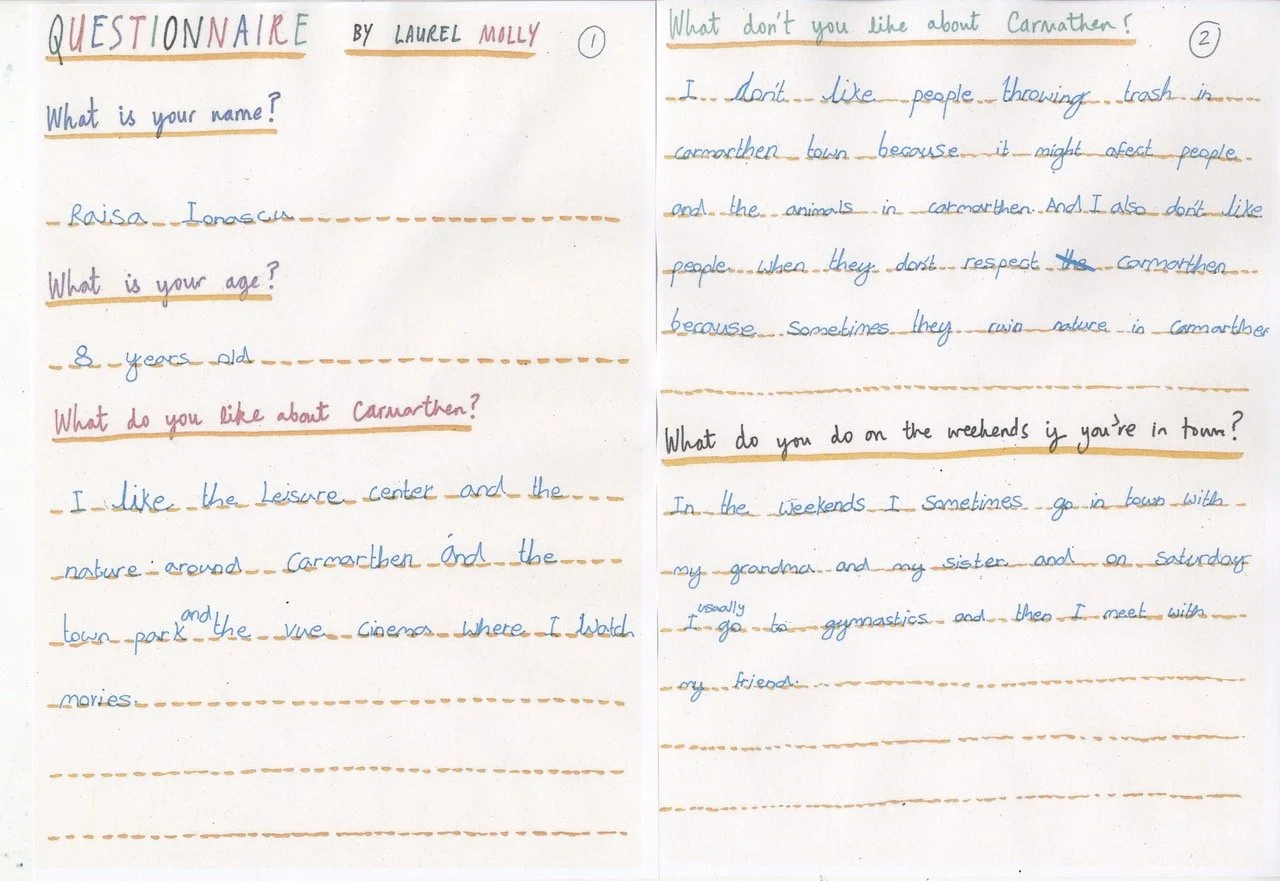 QUESTIONNAIRE BY LAUREL MOLLY 1
What is your name?
Raisa Ionascu
What is your age?
8 years old
What do you like about Carmarthen?
I like the Leisure center and the
nature around Carmarthen And the
town park and the vue cinema where I watch
movies.
What don't you like about Carmathen? 2
I don't like people throwing trash in
carmarthen town because it might afect people
and the animals in carmarthen. And I also don't like
people when they don't respect the Carmarthen
because sometimes they ruin nature in Carmarthen
What do you do on the weekends if you're in town?
In the weekends I sometimes go in town with
my grandma and my sister and on Saturday
I usually go to gymnastics and then I meet with
my friend.